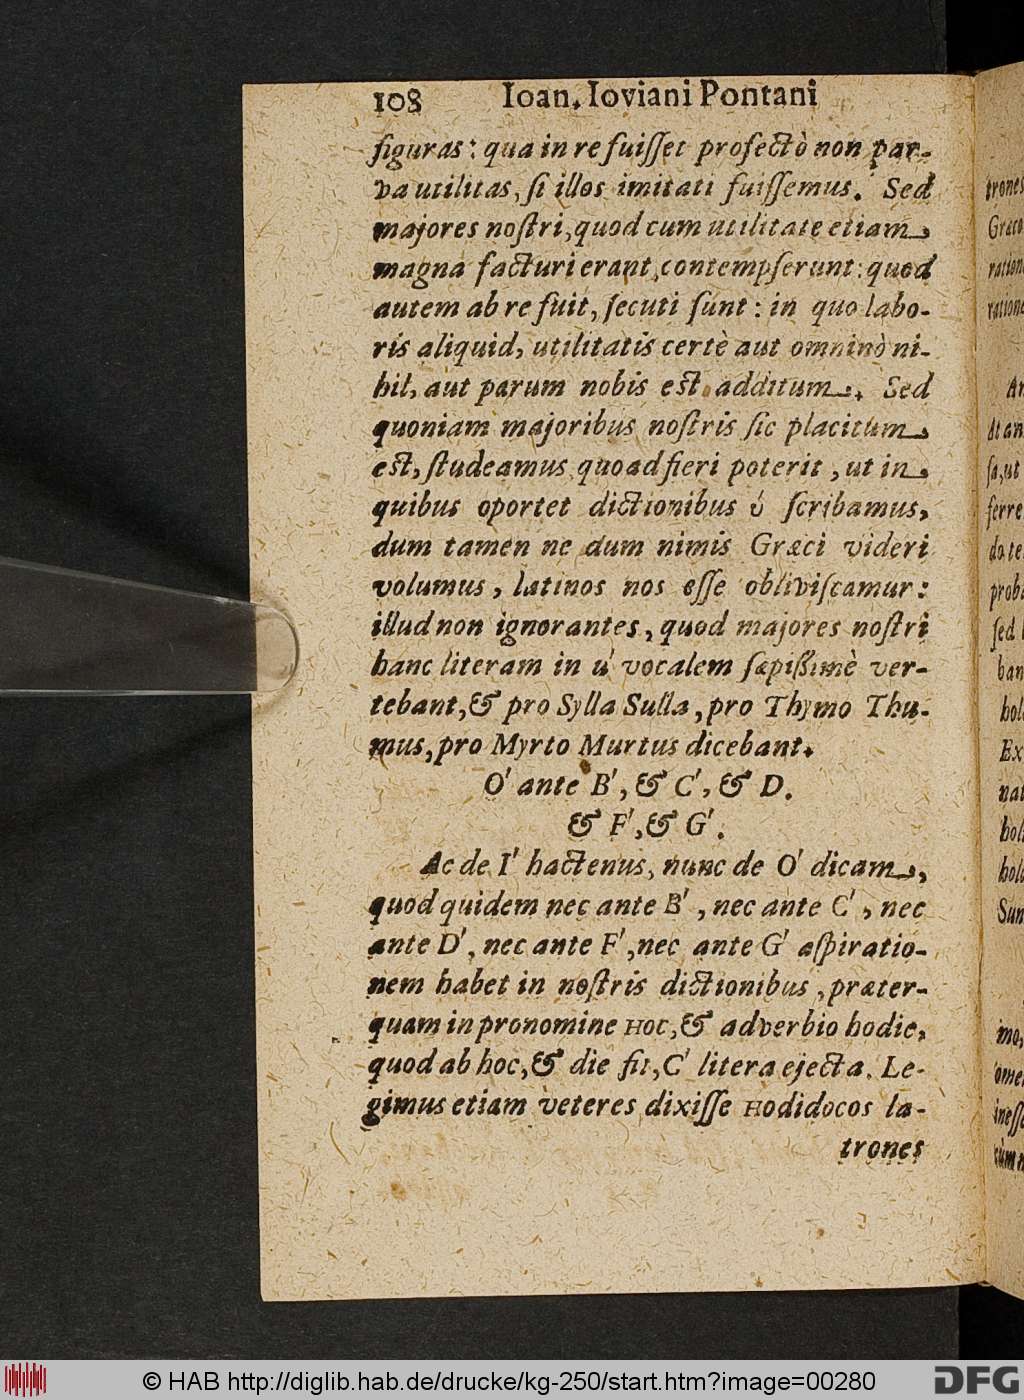 108 Ioan. Ioviani Pontani
figuras: qua in re fuiſſet profectò non par-
va utilitas, ſi illos imitati fuiſſemus. Sed
majores noſtri, quod cum utilitate etiam
magna facturi erant, contempſerunt: quod
autem ab re fuit, ſecuti ſunt: in quo labo-
ris aliquid, utilitatis certè aut omninò ni-
hil, aut parum nobis eſt additum. Sed
quoniam majoribus noſtris ſic placitum
eſt, ſtudeamus quoad fieri poterit, ut in,
quibus oportet dictionibus ύ ſcribamus,
dum tamen ne dum nimis Græci videri
volumus, latinos nos eſſe obliviſcamur:
illud non ignorantes, quod majores noſtri
hanc literam in u' vocalem ſæpißimè ver-
tebant, & pro Sylla Sulla, pro Thymo Thu-
mus, pro Myrto Murtus dicebant.
O' ante B', & C', & D.
& F', & G'.
Ac de I' hactenus, nunc de O' dicam,
quod quidem nec ante B', nec ante C', nec
ante D', nec ante F', nec ante G' aſpiratio-
nem habet in noſtris dictionibus, præter-
quam in pronomine HOC, & adverbio hodie,
quod ab hoc, & die fit, C' litera ejecta. Le-
gimus etiam veteres dixiſſe Hodidocos la-
trones
trones
ration
ferre
ſed
ban
Ex
Sun
© HAB http://diglib.hab.de/drucke/kg-250/start.htm?image=00280
DFG